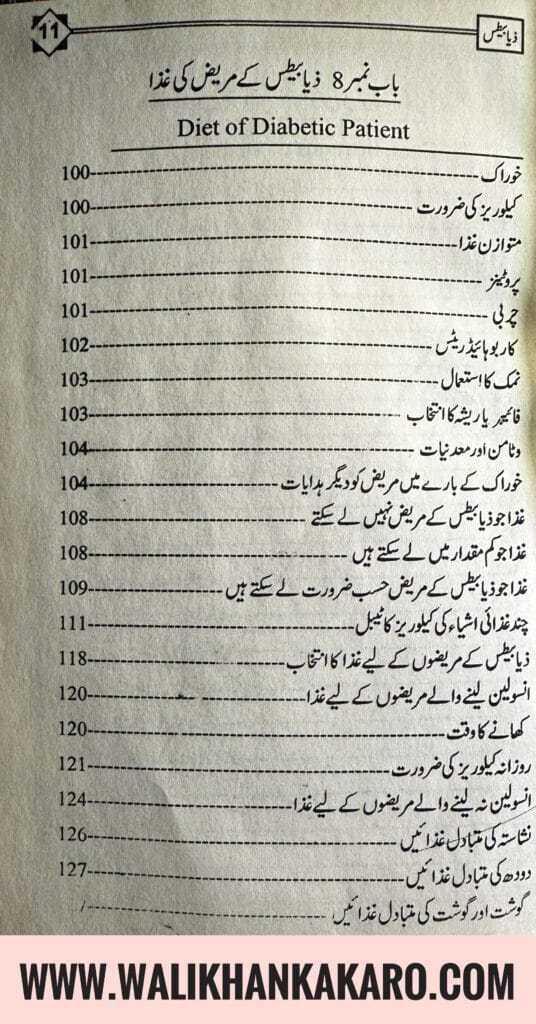 ذیابیطس
11
باب نمبر 8 ذیابیطس کے مریض کی غذا
Diet of Diabetic Patient
خوراک ---------- 100
کیلوریز کی ضرورت ---------- 100
متوازن غذا ---------- 101
پروٹینز ---------- 101
چربی ---------- 101
کاربوہائیڈریٹس ---------- 102
نمک کا استعمال ---------- 103
فائبر یا ریشہ کا انتخاب ---------- 103
وٹامن اور معدنیات ---------- 104
خوراک کے بارے میں مریض کو دیگر ہدایات ---------- 104
غذا جو ذیابیطس کے مریض نہیں لے سکتے ---------- 108
غذا جو کم مقدار میں لے سکتے ہیں ---------- 108
غذا جو ذیابیطس کے مریض حسب ضرورت لے سکتے ہیں ---------- 109
چند غذائی اشیاء کی کیلوریز کا ٹیبل ---------- 111
ذیابیطس کے مریضوں کے لیے غذا کا انتخاب ---------- 118
انسولین لینے والے مریضوں کے لیے غذا ---------- 120
کھانے کا وقت ---------- 120
روزانہ کیلوریز کی ضرورت ---------- 121
انسولین نہ لینے والے مریضوں کے لیے غذا ---------- 124
نشاستہ کی متبادل غذائیں ---------- 126
دودھ کی متبادل غذائیں ---------- 127
گوشت اور گوشت کی متبادل غذائیں ----------
WWW.WALIKHANKAKARO.COM